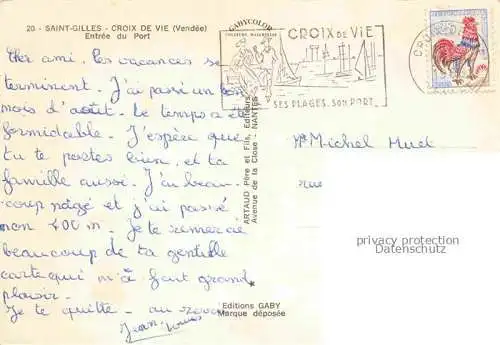 20 - SAINT-GILLES - CROIX DE VIE (Vendée)
Entrée du Port
Cher ami. les vacances se
terminent. J'ai passé un bon
mois d'août. Le temps a été
formidable. J'espère que
tu te portes bien, et ta
famille aussi. J'ai beau-
coup nagé et j'ai passé
mon 400 m. Je te remercie
beaucoup de ta gentille
carte qui m'a fait grand
plaisir.
Je te quitte - au revoir
Jean-
GABYCOLOR
COULEURS NATURELLES
ARTAUD Père et Fils, Editeurs
Avenue de la Close - NANTES
CROIX DE VIE
SES PLAGES. SON PORT.
Mr Michel
Rue
privacy protection
Datenschutz
Editions GABY
Marque déposée